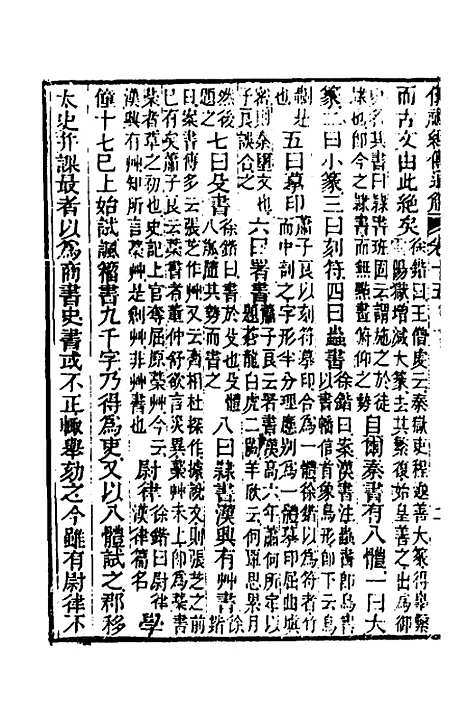 儀禮經傳通解 卷十五
而古文由此絶矣徐鍇曰王僧虔云秦獄吏程邈善大篆得罪繫
雲陽獄增減大篆去其繁復始皇善之出爲御
史名其書曰隸書班固云謂施之於徒
隸也即今之隸書而無點畫俯仰之勢自爾秦書有八體一曰大
篆二曰小篆三曰刻符四曰蟲書徐鍇曰案漢書注蟲書即鳥書
以書幡信首象鳥形即下云鳥
也五曰摹印蕭子良以刻符摹印合爲一體徐鍇以爲符者竹
而中剖之字形半分理應別爲一體摹印屈曲填
密則秦璽文也
子良誤合之六曰署書蕭子良云署書漢高六年蕭何所定以
題蒼龍白虎二闕羊欣云何覃思累月
然後
題之七曰殳書徐鍇曰書於殳也殳體
八觚隨其勢而書之八曰隸書漢興有艸書徐鍇
曰案書傳多云張芝作艸又云齊相杜探作據說文則張芝之前
已有矣蕭子良云藁書者董仲舒欲言災異藁艸未上即爲藁書
藁者草之初也史記上官奪屈原藁艸今云
漢興有艸知所言藁艸是創艸非艸書也尉律徐鍇曰尉律
漢律篇名學
僮十七已上始試諷籀書九千字乃得爲吏又以八體試之郡移
太史并課最者以爲尚書史書或不正輙舉劾之今雖有尉律不